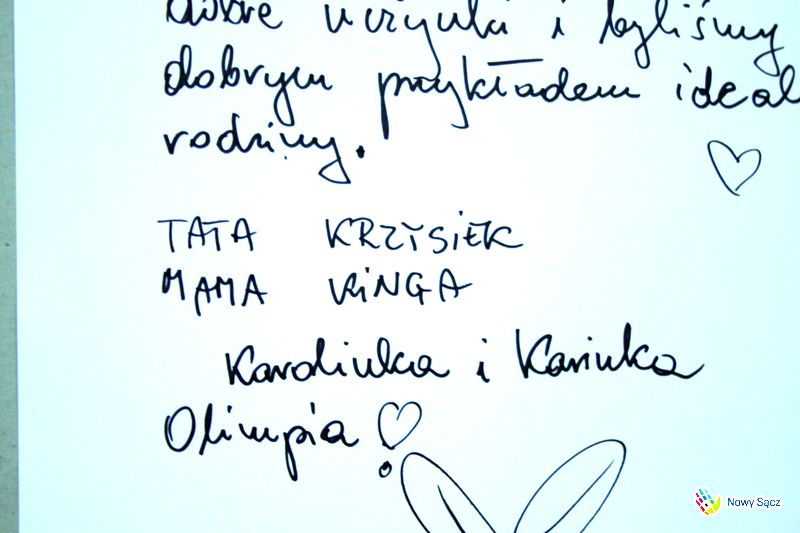 dobre uczynki i byliśmy
dobrym przykładem ideal
rodziny.
TATA KRZYSIEK
MAMA KINGA
Karolinka i Karinka
Olimpia
Nowy Sącz